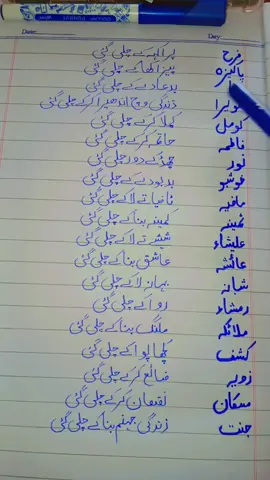 Date: Day:
فرح پرابلم دے چلی گئی
پاکیزہ پینڑا اٹھا کے چلی گئی
بد عا دے کے چلی گئی
زندگی وچ اندھیرا کر کے چلی گئی
کومل کملا کر کے چلی گئی
فاطمہ خاتمہ کر کے چلی گئی
نور چھڈ کے دور چلی گئی
خوشبو بدبو دے کے چلی گئی
مافیہ ٹافیاں لے کے چلی گئی
ثمینہ کمینہ بنا کے چلی گئی
علیشاء شیشے لا کے چلی گئی
عائشہ عاشق بنا کے چلی گئی
شانہ بہانہ لا کے چلی گئی
رمشاء روا کے چلی گئی
ملائکہ ملنگ بنا کے چلی گئی
کشف کھپا پوا کے چلی گئی
زویہ ضائع کر کے چلی گئی
مسکان نقصان کر کے چلی گئی
جنت زندگی جہنم بنا کے چلی گئی